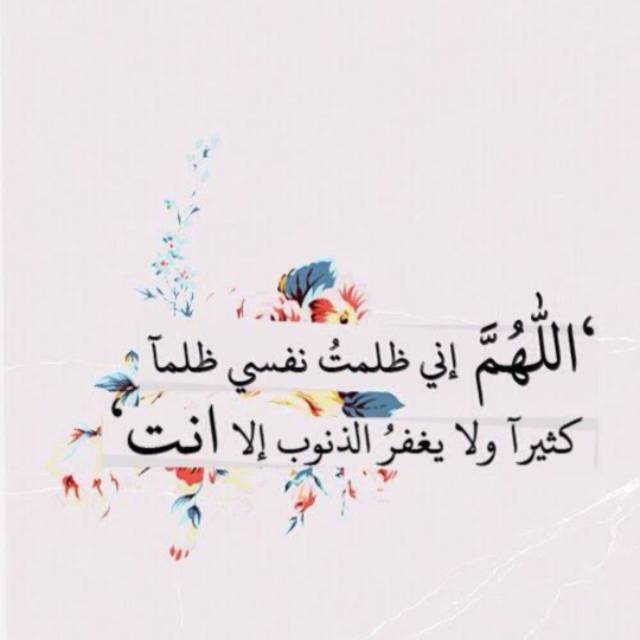 ‘اللّٰهُمَّ إني ظلمتُ نفسي ظلمآ
كثيرآ ولا يغفرُ الذنوب إلا انت‘